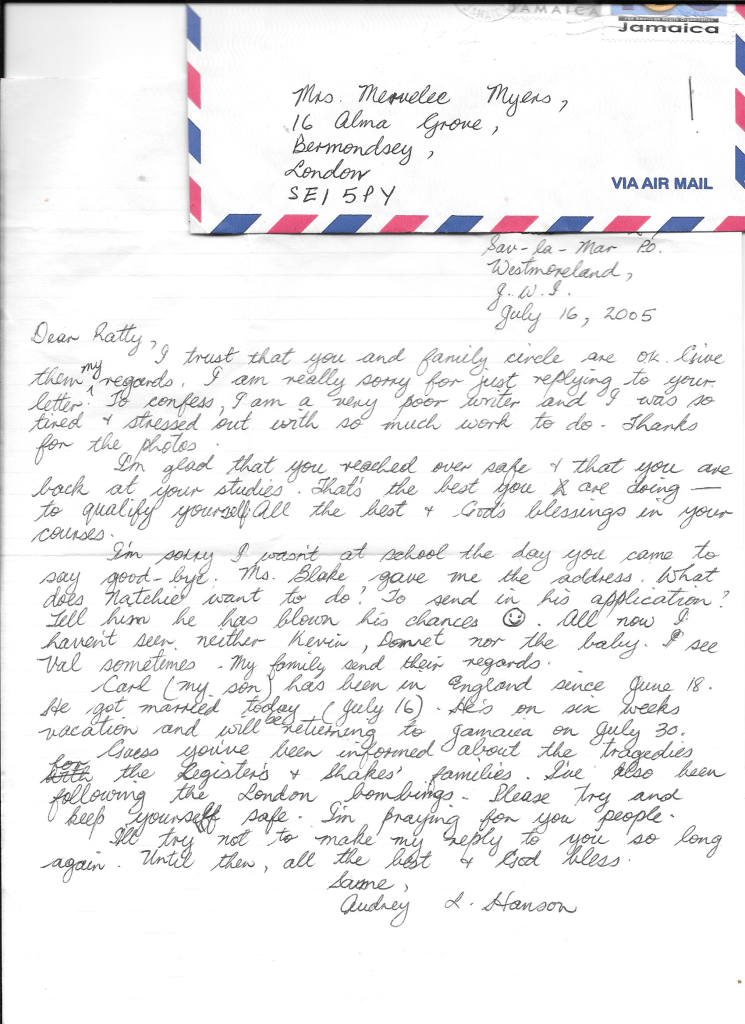 JAMAICA
Jamaica
Mrs. Mervelee Myers,
16 Alma Grove,
Bermondsey,
London
SE1 5PY
VIA AIR MAIL
Sav-la-Mar P.O.
Westmoreland,
J.W.I.
July 16, 2005
Dear Ratty,
I trust that you and family circle are ok. Give
them my regards. I am really sorry for just replying to your
letter. To confess, I am a very poor writer and I was so
tired & stressed out with so much work to do. Thanks
for the photos.
I'm glad that you reached over safe & that you are
back at your studies. That's the best you are doing —
to qualify yourself. All the best & God's blessings in your
courses.
I'm sorry I wasn't at school the day you came to
say good-bye. Ms. Blake gave me the address. What
does Natchie want to do? To send in his application?
Tell him he has blown his chances ☺. All now I
haven't seen neither Kevin, nor the baby. I see
Val sometimes. My family send their regards.
Carl (my son) has been in England since June 18.
He got married today (July 16). He's on six weeks
vacation and will be returning to Jamaica on July 30.
Guess you've been informed about the tragedies
for the Register's & Shakes' families. I've also been
following the London bombings. Please try and
keep yourself safe. I'm praying for you people.
I'll try not to make my reply to you so long
again. Until then, all the best & God bless.
Same,
Audrey L. Hanson